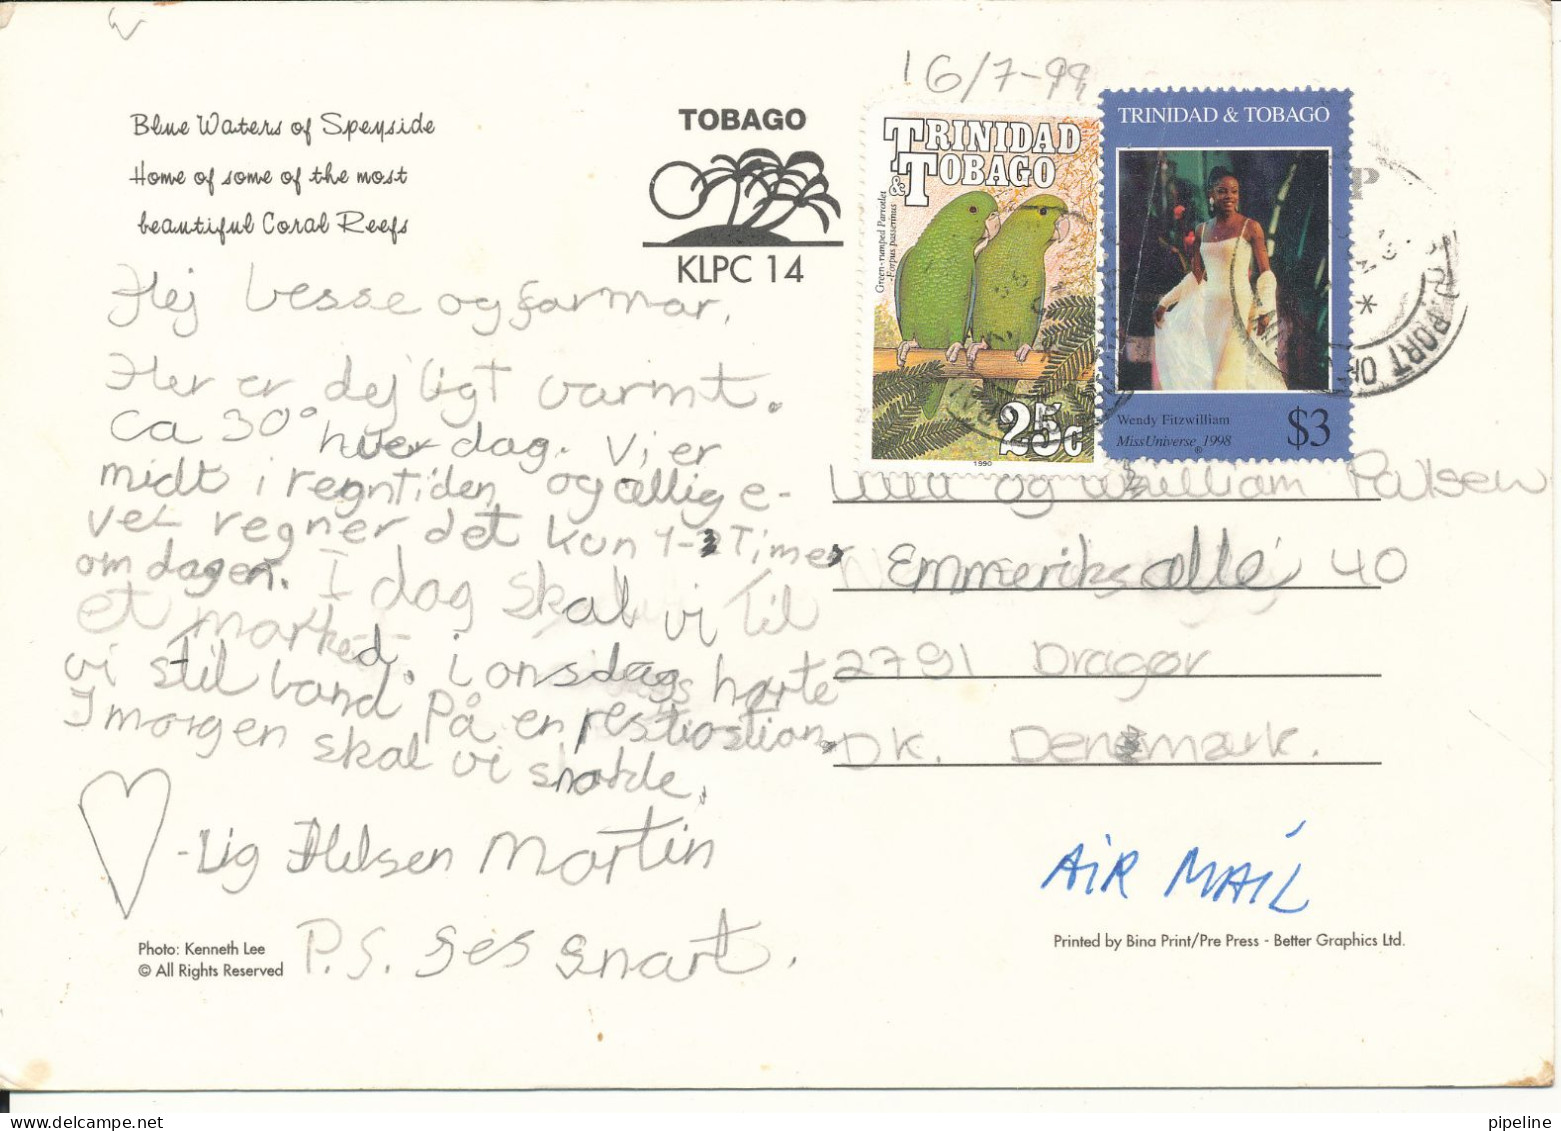 Blue Waters of Speyside
Home of some of the most
beautiful Coral Reefs
TOBAGO
KLPC 14
16/7-99
TRINIDAD
& TOBAGO
Green-rumped Parrotlet
-Forpus passerinus
25c
1990
TRINIDAD & TOBAGO
Wendy Fitzwilliam
Miss Universe® 1998
$3
PORT OF
Hej besse og farmor.
Her er dejligt varmt.
Ca 30° hver dag. Vi er
midt i regntiden, og allige-
vel regner det kun 1-3 Timer
om dagen. I dag skal vi til
et marked. i onsdags hørte
vi stil band på en
I morgen skal vi
-Lig Hilsen Martin
P.S. ses snart.
og William Palsen
Emmeriks allé 40
2791 Dragør
DK. Denemark.
AIR MAIL
Photo: Kenneth Lee
© All Rights Reserved
Printed by Bina Print/Pre Press - Better Graphics Ltd.
pipeline